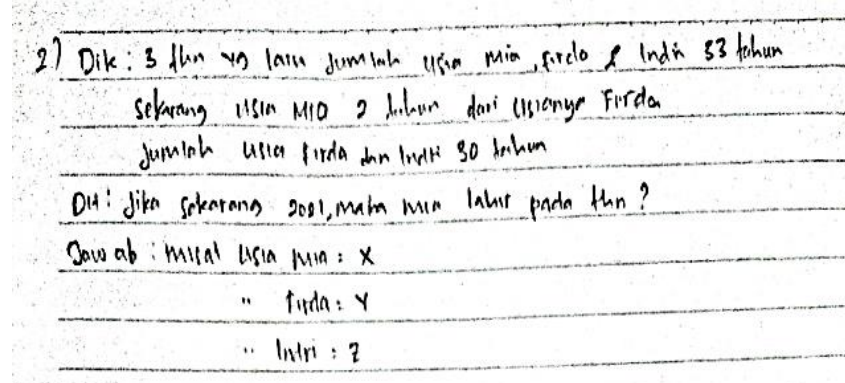 2) Dik : 3 thn yg lalu jumlah usia Mia, Firda & Indri 33 tahun
sekarang usia Mia 2 tahun dari usianya Firda
jumlah usia Firda dan Indri 30 tahun
Dit : Jika sekarang 2021, maka Mia lahir pada thn ?
Jawab : misal usia Mia : X
" Firda : Y
" Intri : Z